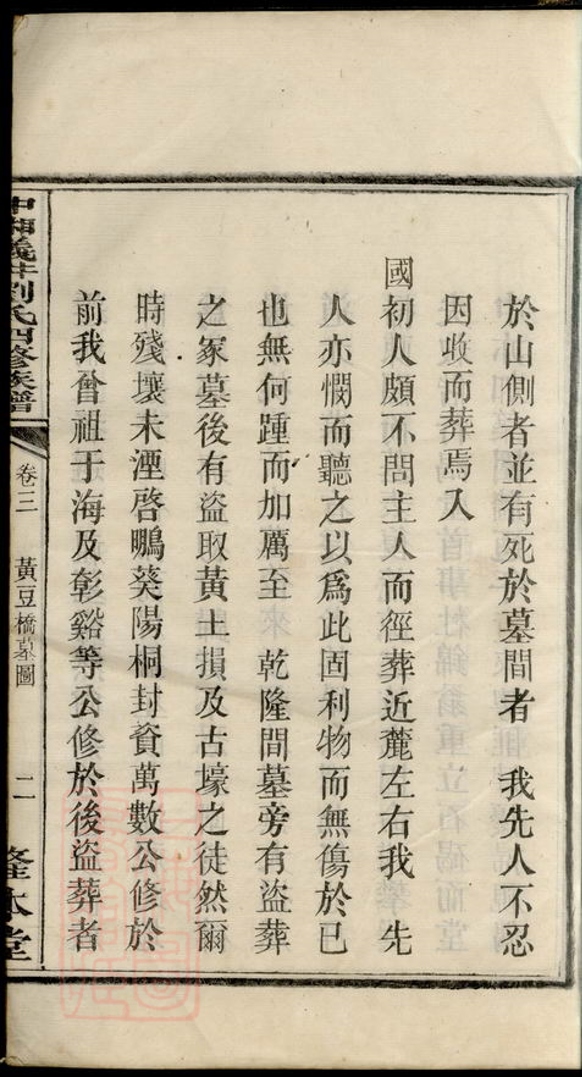 於山側者並有死於墓間者　我先人不忍
因收而葬焉入
國初人頗不問主人而徑葬近麓左右我　先
人亦憫而聽之以爲此固利物而無傷於已
也無何踵而加厲至　乾隆間墓旁有盜葬
之冢墓後有盜取黃土損及古壕之徒然爾
時殘壞未湮啓鵰葵陽桐封資萬數公修於
前我曾祖于海及彰谿等公修於後盜葬者
中湘義井劉氏四修族譜
卷三
黃豆橋墓圖
二
隆本堂